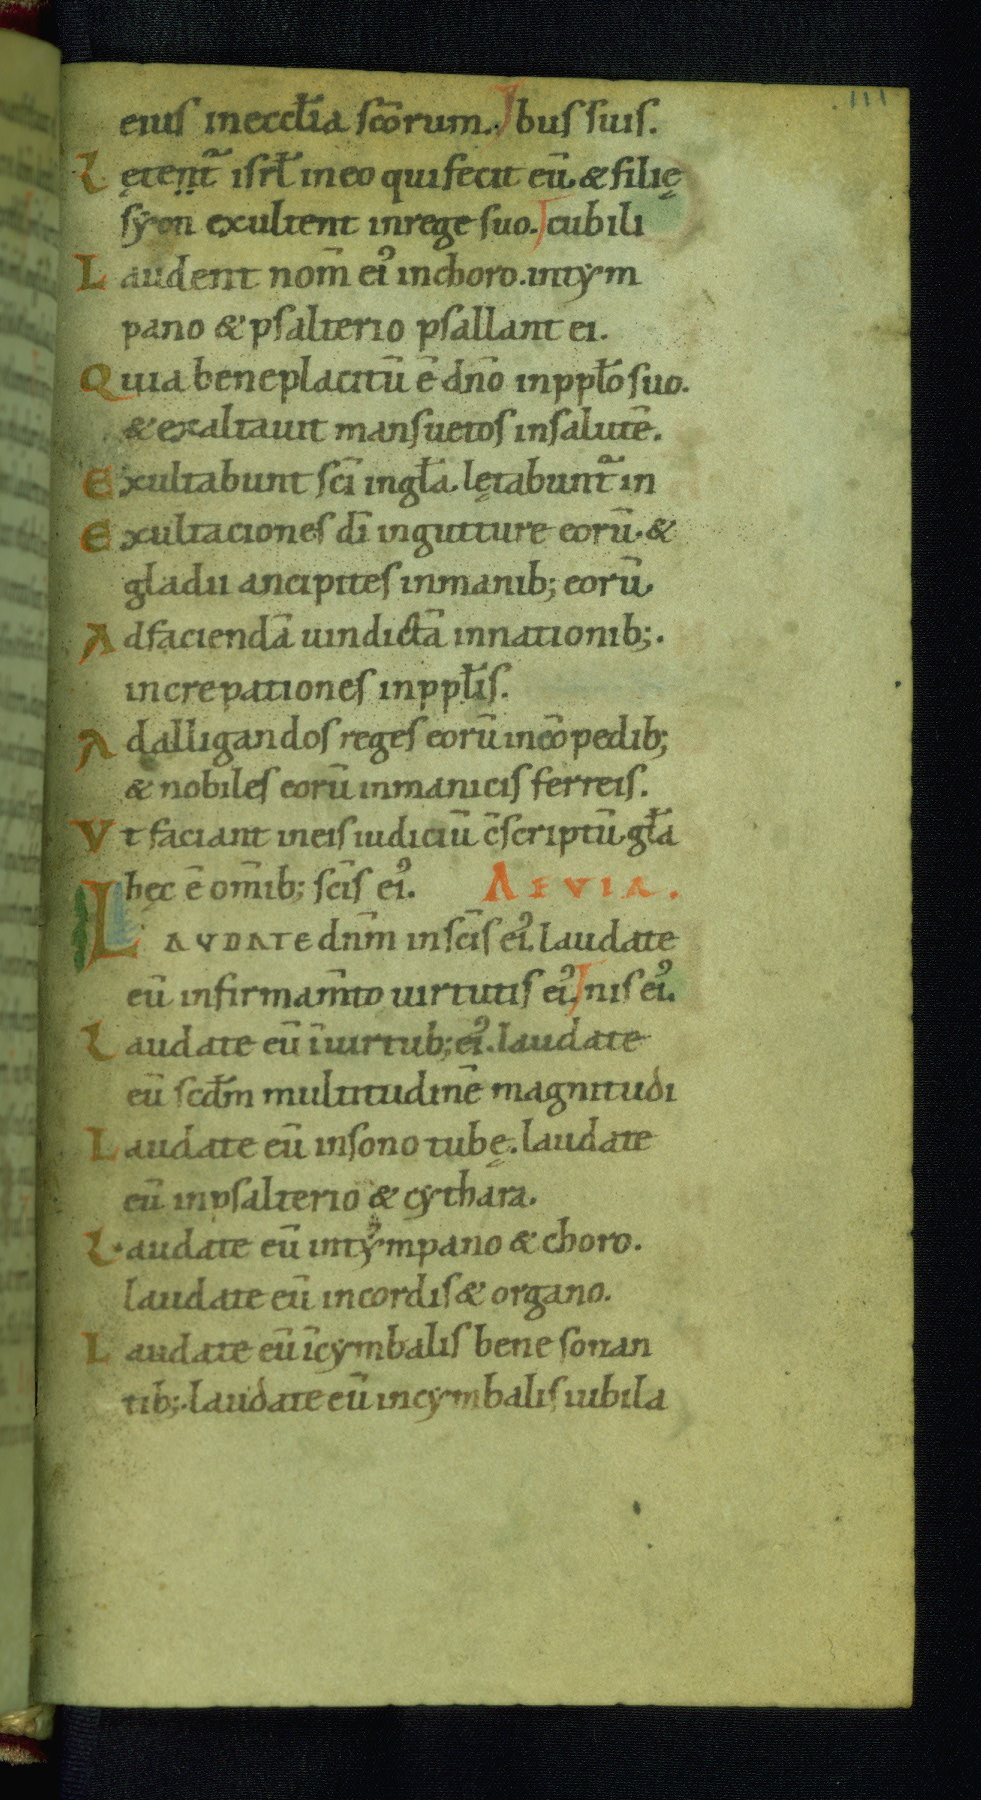 111
eius in eccl̄ia sc̄orum. bus suis.
Lętent᷑ isrl̄ in eo qui fecit eū. & filię
sẏon exultent in rege suo. cubili
Laudent nom̄ ei᾿ in choro. in tẏm
pano & psalterio psallant ei.
Quia beneplacitū ē dn̄o in ppl̄o suo.
& exaltauit mansuetos in salutē.
Exultabunt sc̄i in gl̄a. lętabunt᷑ in
Exultaciones dī in gutture eorū. &
gladii ancipites in manib; eorū
Ad faciendā uindictā in nationib;.
increpationes in ppl̄is.
Ad alligandos reges eorū in cō pedib;
& nobiles eorū in manicis ferreis.
Vt faciant in eis iudiciū c̄scriptū. gl̄a
hęc ē om̄ib; sc̄is ei᾿. AEVIA.
LAVDATE dn̄m in sc̄is ei᾿. laudate
eū in firmam̄to uirtutis ei᾿. nis ei᾿.
Laudate eū ī uirtub; ei᾿. laudate
eū scd̄m multitudinē magnitudi
Laudate eū in sono tubę. laudate
eū in psalterio & cythara.
Laudate eū in tẏmpano & choro.
laudate eū in cordis & organo.
Laudate eū ī cymbalis bene sonan
tib;. laudate eū in cymbalis iubila